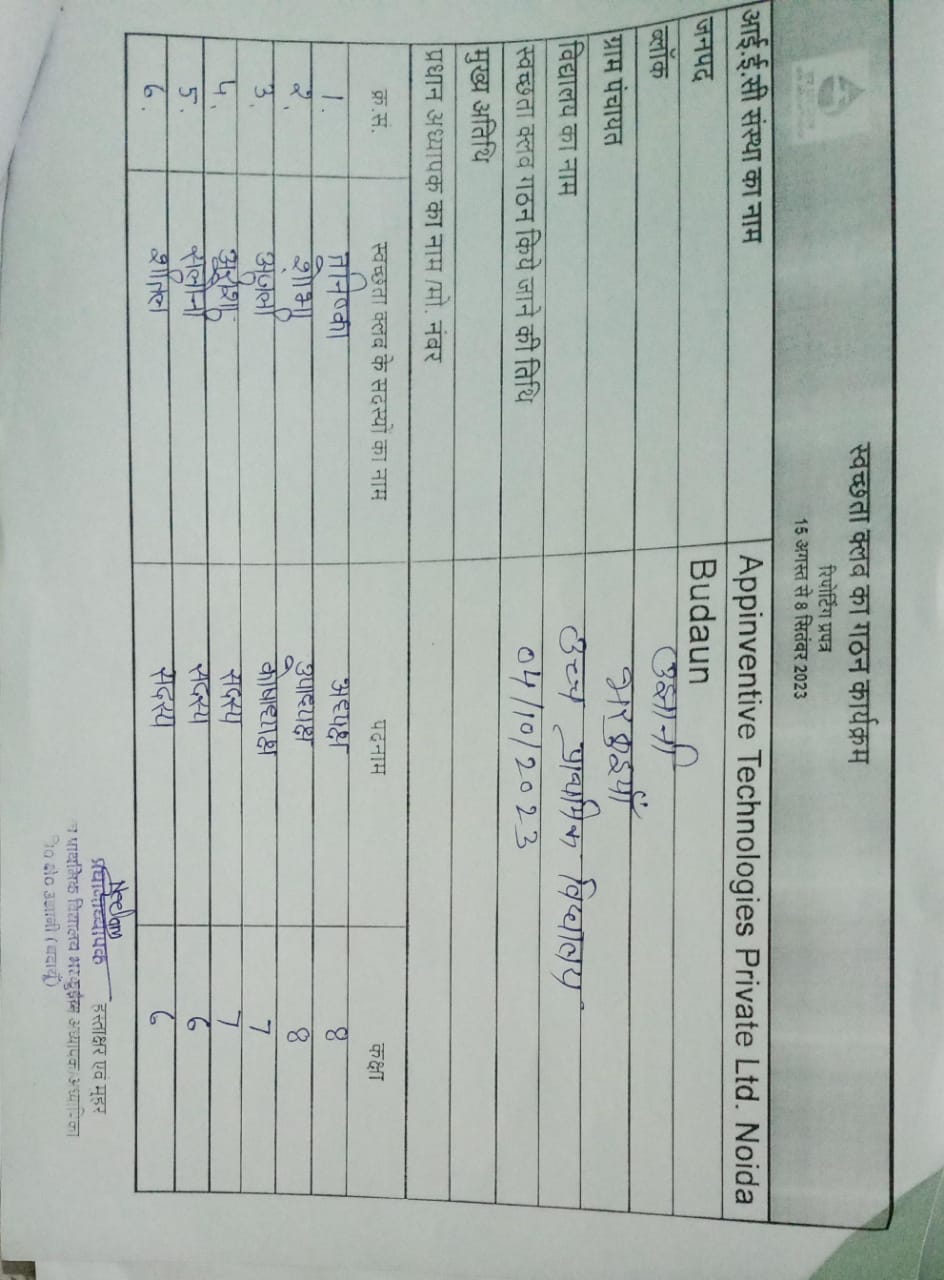 स्वच्छता क्लब का गठन कार्यक्रम
रिपोर्टिंग प्रपत्र
15 अगस्त से 8 सितंबर 2023
आई.ई.सी संस्था का नाम Appinventive Technologies Private Ltd. Noida
जनपद Budaun
ब्लॉक उझानी
ग्राम पंचायत भरकुईयाँ
विद्यालय का नाम उच्च प्राथमिक विद्यालय
स्वच्छता क्लब गठन किये जाने की तिथि 04/10/2023
मुख्य अतिथि
प्रधान अध्यापक का नाम /मो. नंबर
क्र.स. स्वच्छता क्लब के सदस्यों का नाम पदनाम कक्षा
1. तनिष्का अध्यक्ष 8
२. शोभा उपाध्यक्ष 8
3. अंजली कोषाध्यक्ष 7
४. सदस्य 7
५. सलोनी सदस्य 6
6. शीतल सदस्य 6
Neelam
प्रधानाध्यापक हस्ताक्षर एवं मुहर
प्राथमिक विद्यालय अध्यापक/अध्यापिका
उझानी (बदायूँ)